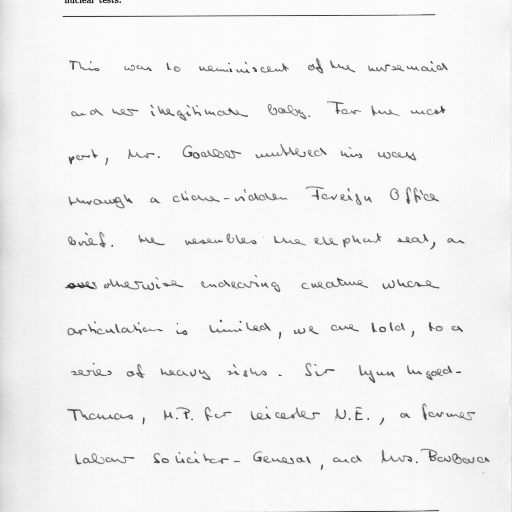 nuclear tests.
This was to reminiscent of the nursemaid
and her illegitimate baby. For the most
part, Mr. Godber muttered his way
through a cliche-ridden Foreign Office
brief. He resembles the elephant seal, an
otherwise endearing creature whose
articulation is limited, we are told, to a
series of heavy sighs. Sir Lynn Ungoed-
Thomas, M.P. for Leicester N.E., a former
Labour Solicitor-General, and Mrs. Barbara